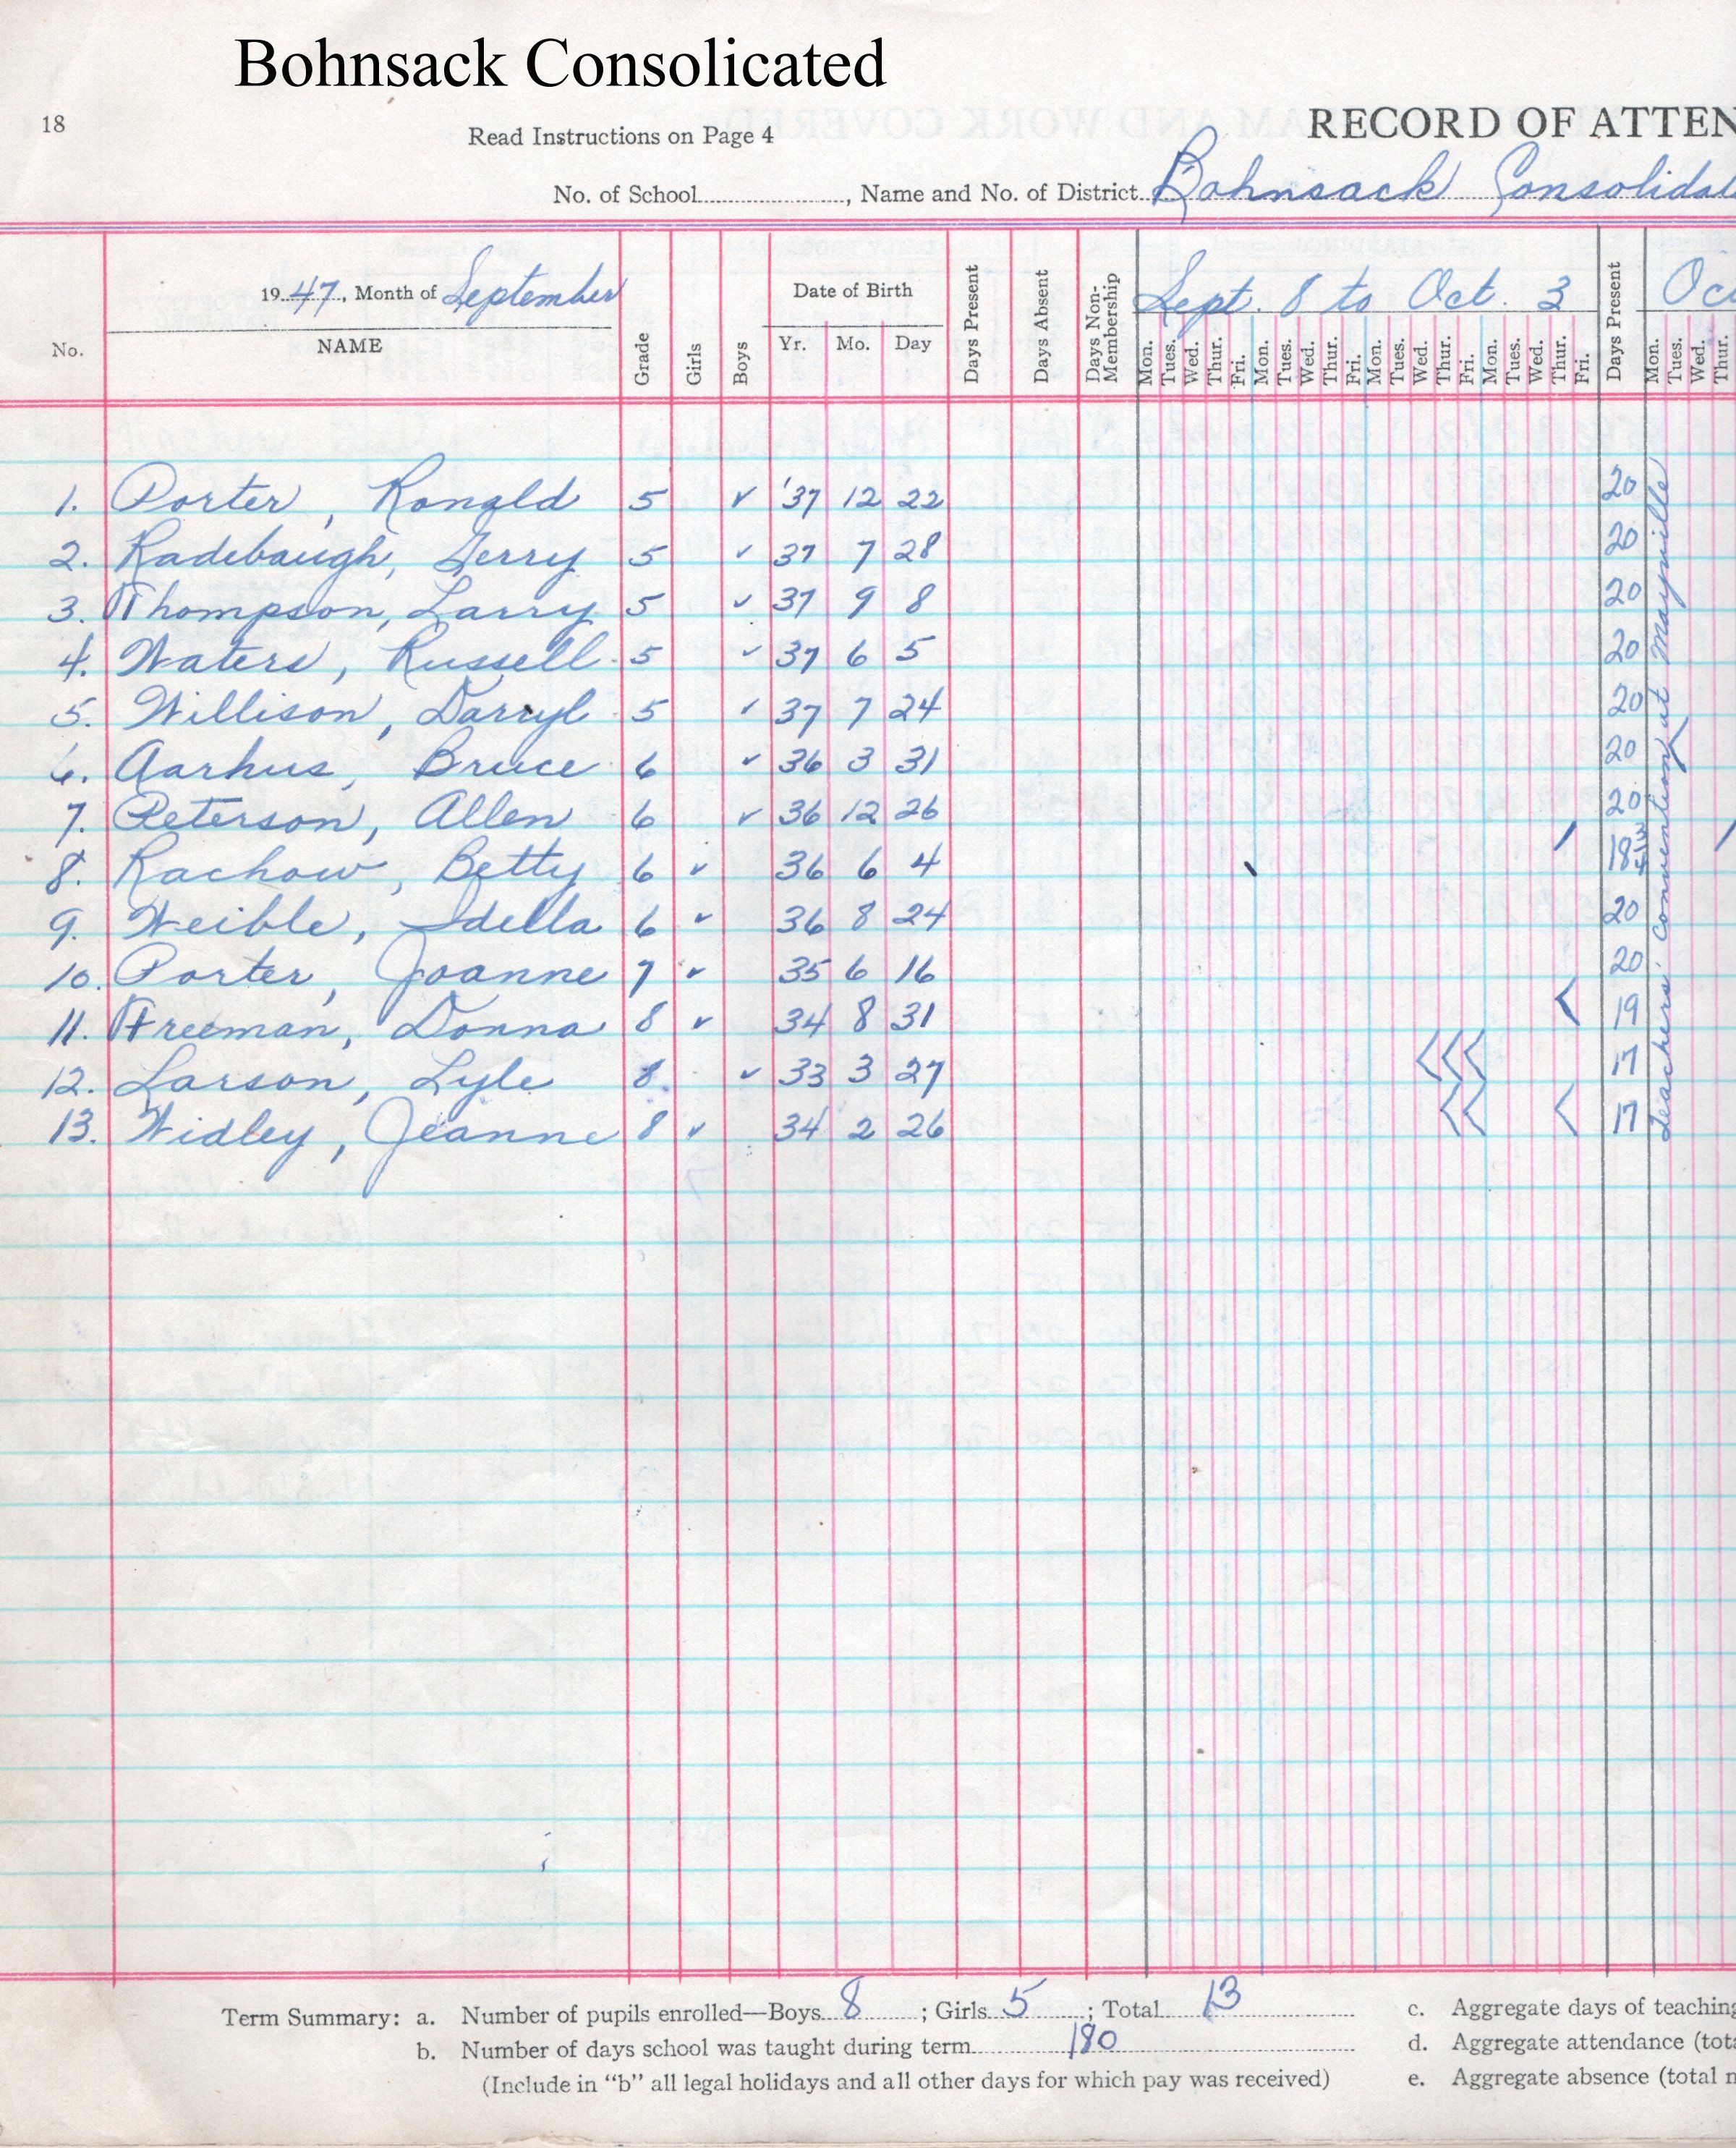 Bohnsack Consolicated
18
Read Instructions on Page 4
RECORD OF ATTEN
No. of School, Name and No. of District Bohnsack Consolidat
No.
1947, Month of September
NAME
Grade
Girls
Boys
Date of Birth
Yr. Mo. Day
Days Present
Days Absent
Days Non-Membership
Sept. 8 to Oct. 3
Mon. Tues. Wed. Thur. Fri. Mon. Tues. Wed. Thur. Fri. Mon. Tues. Wed. Thur. Fri. Mon. Tues. Wed. Thur. Fri.
Days Present
Oc
Mon. Tues. Wed. Thur.
1. Porter, Ronald 5 ✓ '37 12 22 20
2. Radebaugh, Jerry 5 ✓ 37 7 28 20
3. Thompson, Larry 5 ✓ 37 9 8 20
4. Waters, Russell 5 ✓ 37 6 5 20
5. Willison, Darryl 5 ✓ 37 7 24 20
6. Aarhus, Bruce 6 ✓ 36 3 31 20
7. Peterson, Allen 6 ✓ 36 12 26 20
8. Rachow, Betty 6 ✓ 36 6 4 18 3/4
9. Weible, Idella 6 ✓ 36 8 24 20
10. Porter, Joanne 7 ✓ 35 6 16 20
11. Freeman, Donna 8 ✓ 34 8 31 19
12. Larson, Lyle 8 ✓ 33 3 27 17
13. Widley, Jeanne 8 ✓ 34 2 26 17
Teachers' Convention at Mayville
Term Summary: a. Number of pupils enrolled—Boys 8; Girls 5; Total 13
b. Number of days school was taught during term 180
(Include in "b" all legal holidays and all other days for which pay was received)
c. Aggregate days of teaching
d. Aggregate attendance (tot
e. Aggregate absence (total